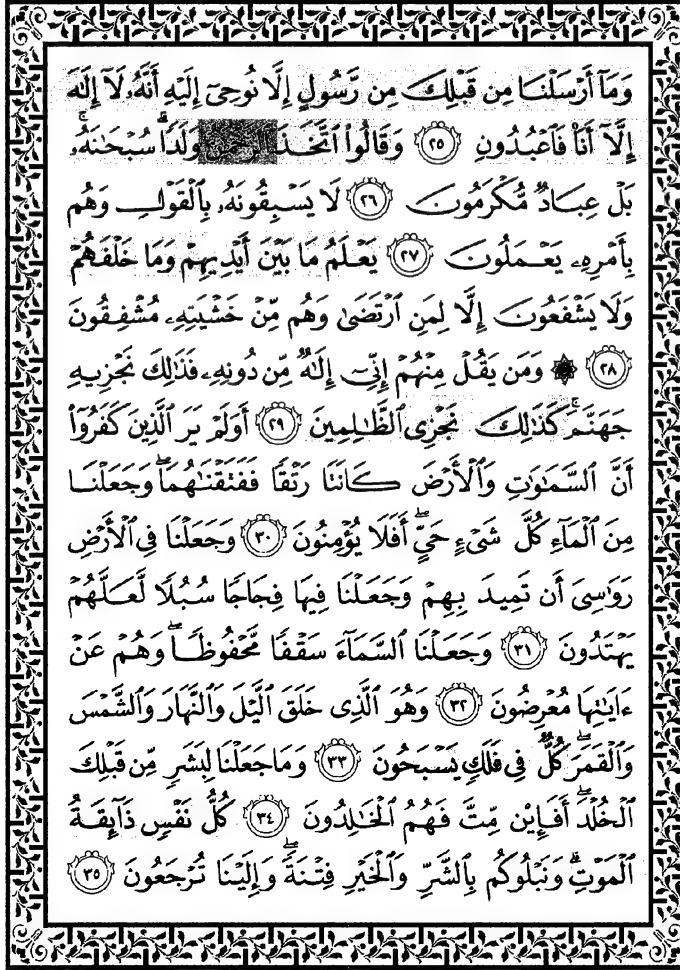 وَمَآ أَرْسَلْنَا مِن قَبْلِكَ مِن رَّسُولٍ إِلَّا نُوحِىٓ إِلَيْهِ أَنَّهُۥ لَآ إِلَٰهَ
إِلَّآ أَنَا۠ فَٱعْبُدُونِ ٢٥ وَقَالُوا۟ ٱتَّخَذَ ٱلرَّحْمَٰنُ وَلَدًا ۗ سُبْحَٰنَهُۥ ۚ
بَلْ عِبَادٌ مُّكْرَمُونَ ٢٦ لَا يَسْبِقُونَهُۥ بِٱلْقَوْلِ وَهُم
بِأَمْرِهِۦ يَعْمَلُونَ ٢٧ يَعْلَمُ مَا بَيْنَ أَيْدِيهِمْ وَمَا خَلْفَهُمْ
وَلَا يَشْفَعُونَ إِلَّا لِمَنِ ٱرْتَضَىٰ وَهُم مِّنْ خَشْيَتِهِۦ مُشْفِقُونَ
٢٨ ۞ وَمَن يَقُلْ مِنْهُمْ إِنِّىٓ إِلَٰهٌ مِّن دُونِهِۦ فَذَٰلِكَ نَجْزِيهِ
جَهَنَّمَ ۚ كَذَٰلِكَ نَجْزِى ٱلظَّٰلِمِينَ ٢٩ أَوَلَمْ يَرَ ٱلَّذِينَ كَفَرُوٓا۟
أَنَّ ٱلسَّمَٰوَٰتِ وَٱلْأَرْضَ كَانَتَا رَتْقًا فَفَتَقْنَٰهُمَا ۖ وَجَعَلْنَا
مِنَ ٱلْمَآءِ كُلَّ شَىْءٍ حَىٍّ ۖ أَفَلَا يُؤْمِنُونَ ٣٠ وَجَعَلْنَا فِى ٱلْأَرْضِ
رَوَٰسِىَ أَن تَمِيدَ بِهِمْ وَجَعَلْنَا فِيهَا فِجَاجًا سُبُلًا لَّعَلَّهُمْ
يَهْتَدُونَ ٣١ وَجَعَلْنَا ٱلسَّمَآءَ سَقْفًا مَّحْفُوظًا ۖ وَهُمْ عَنْ
ءَايَٰتِهَا مُعْرِضُونَ ٣٢ وَهُوَ ٱلَّذِى خَلَقَ ٱلَّيْلَ وَٱلنَّهَارَ وَٱلشَّمْسَ
وَٱلْقَمَرَ ۖ كُلٌّ فِى فَلَكٍ يَسْبَحُونَ ٣٣ وَمَا جَعَلْنَا لِبَشَرٍ مِّن قَبْلِكَ
ٱلْخُلْدَ ۖ أَفَإِي۟ن مِّتَّ فَهُمُ ٱلْخَٰلِدُونَ ٣٤ كُلُّ نَفْسٍ ذَآئِقَةُ
ٱلْمَوْتِ ۗ وَنَبْلُوكُم بِٱلشَّرِّ وَٱلْخَيْرِ فِتْنَةً ۖ وَإِلَيْنَا تُرْجَعُونَ ٣٥